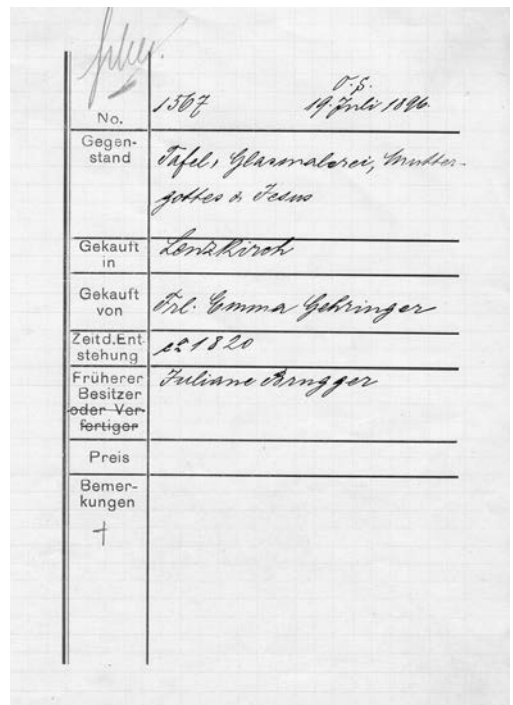 O. S.
No. 1567 19. Juli 1896.
Gegen-
stand
Tafel, Glasmalerei, Mutter-
gottes & Jesus
Gekauft
in
Lenzkirch
Gekauft
von
Frl. Emma Gehringer
Zeit d. Ent-
stehung
ca 1820
Früherer
Besitzer
oder Ver-
fertiger
Juliane Brugger
Preis
Bemer-
kungen
+